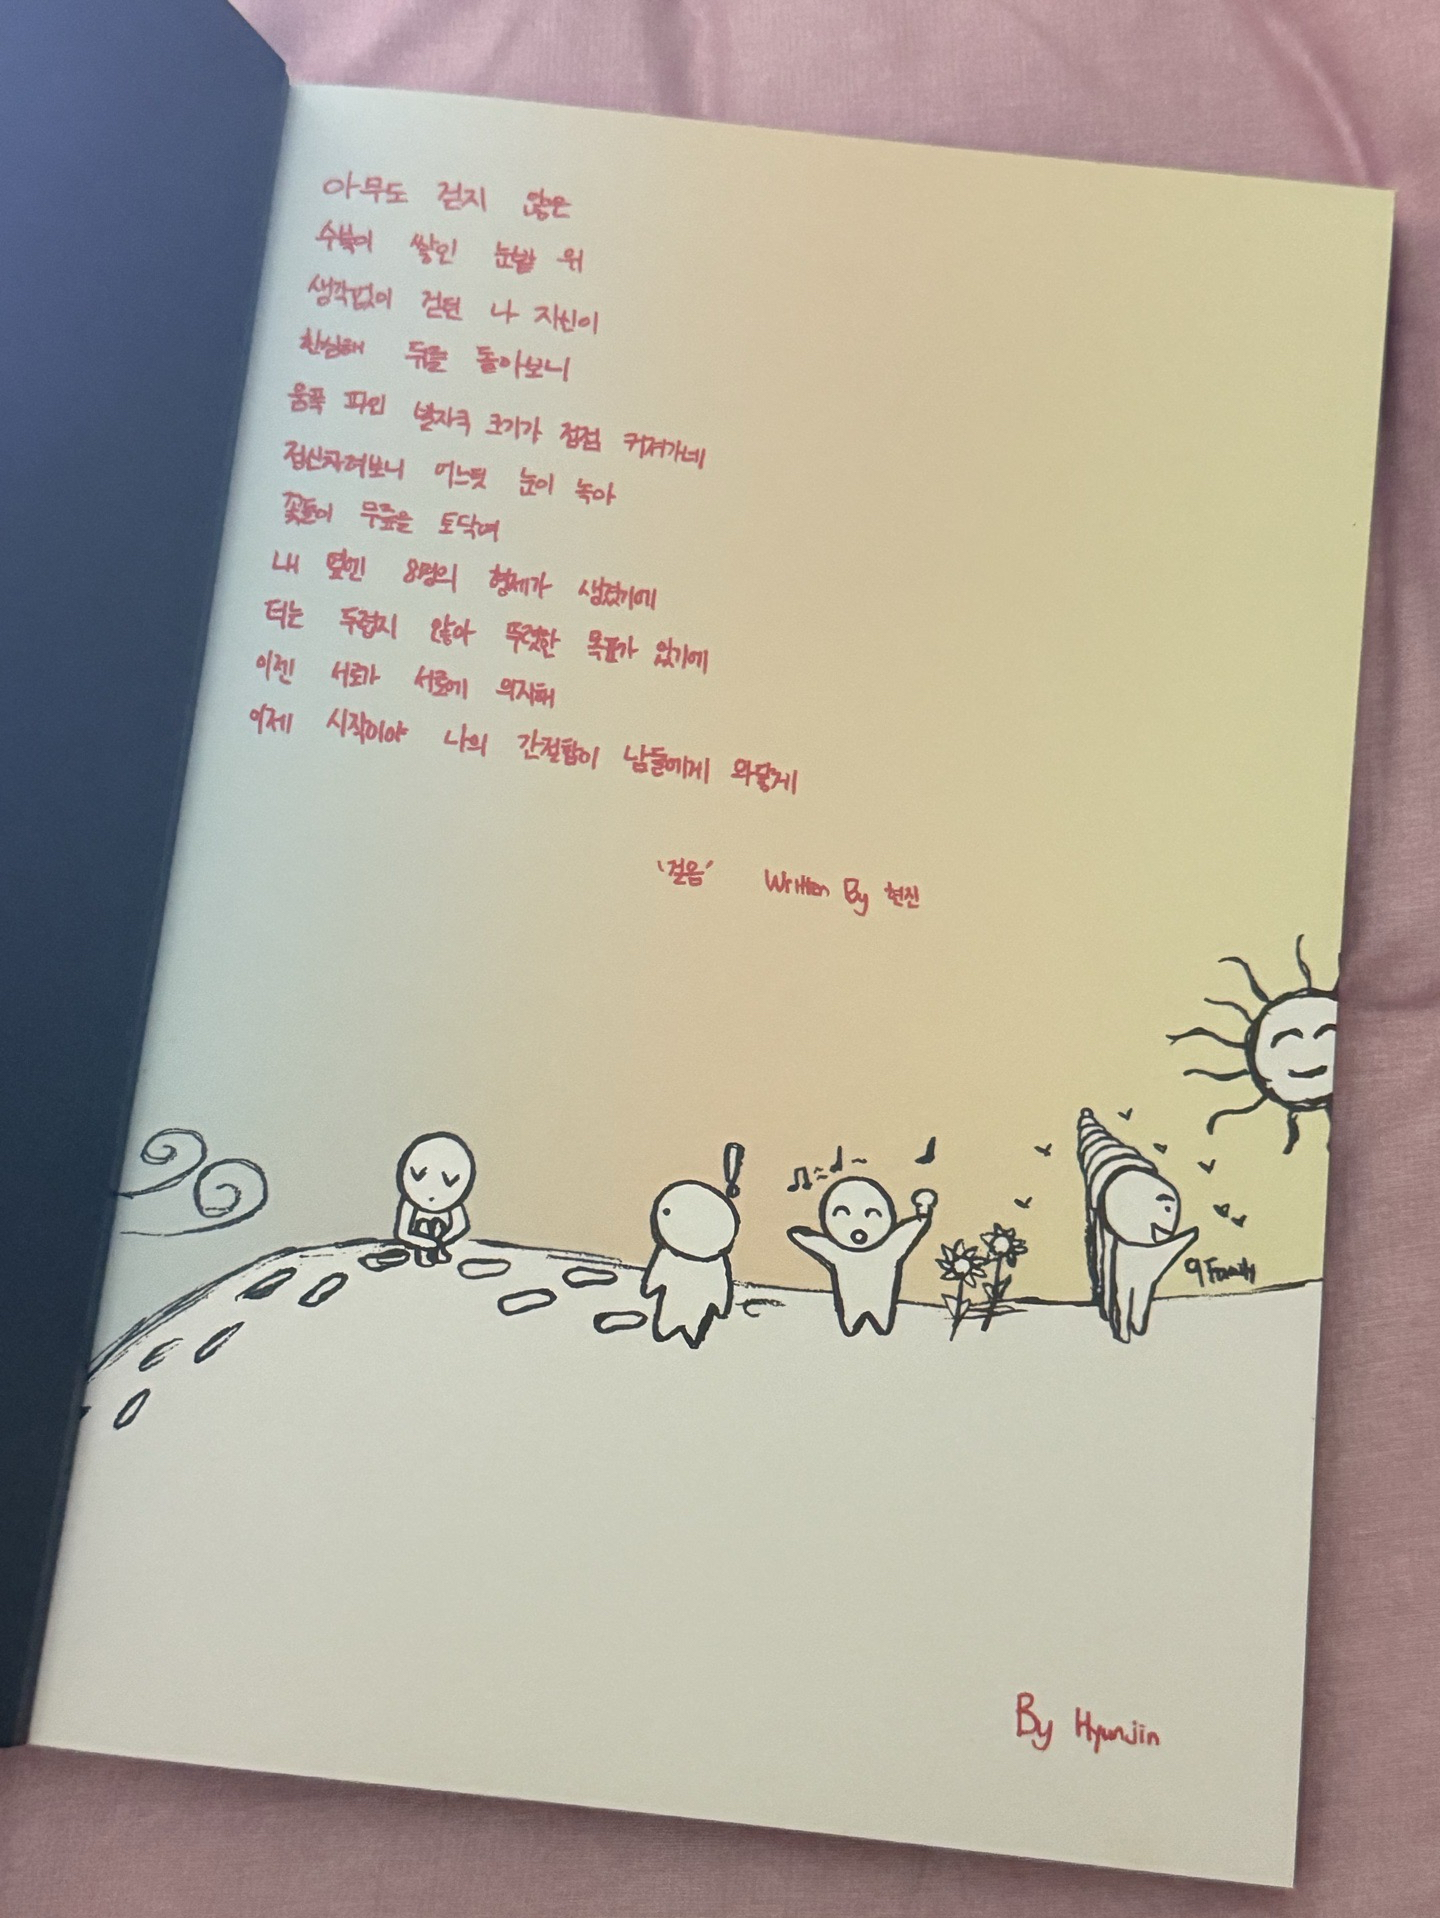 아무도 걷지 않은
수북이 쌓인 눈밭 위
생각없이 걷던 나 자신이
한심해 뒤를 돌아보니
움푹 파인 발자국 크기가 점점 커져가네
정신차려보니 어느덧 눈이 녹아
꽃들이 무릎을 토닥여
내 옆엔 8명의 형제가 생겼기에
더는 두렵지 않아 뚜렷한 목표가 있기에
이젠 서로가 서로에 의지해
이제 시작이야 나의 간절함이 남들에게 와닿게
'걸음' Written By 현진
9
By Hyunjin